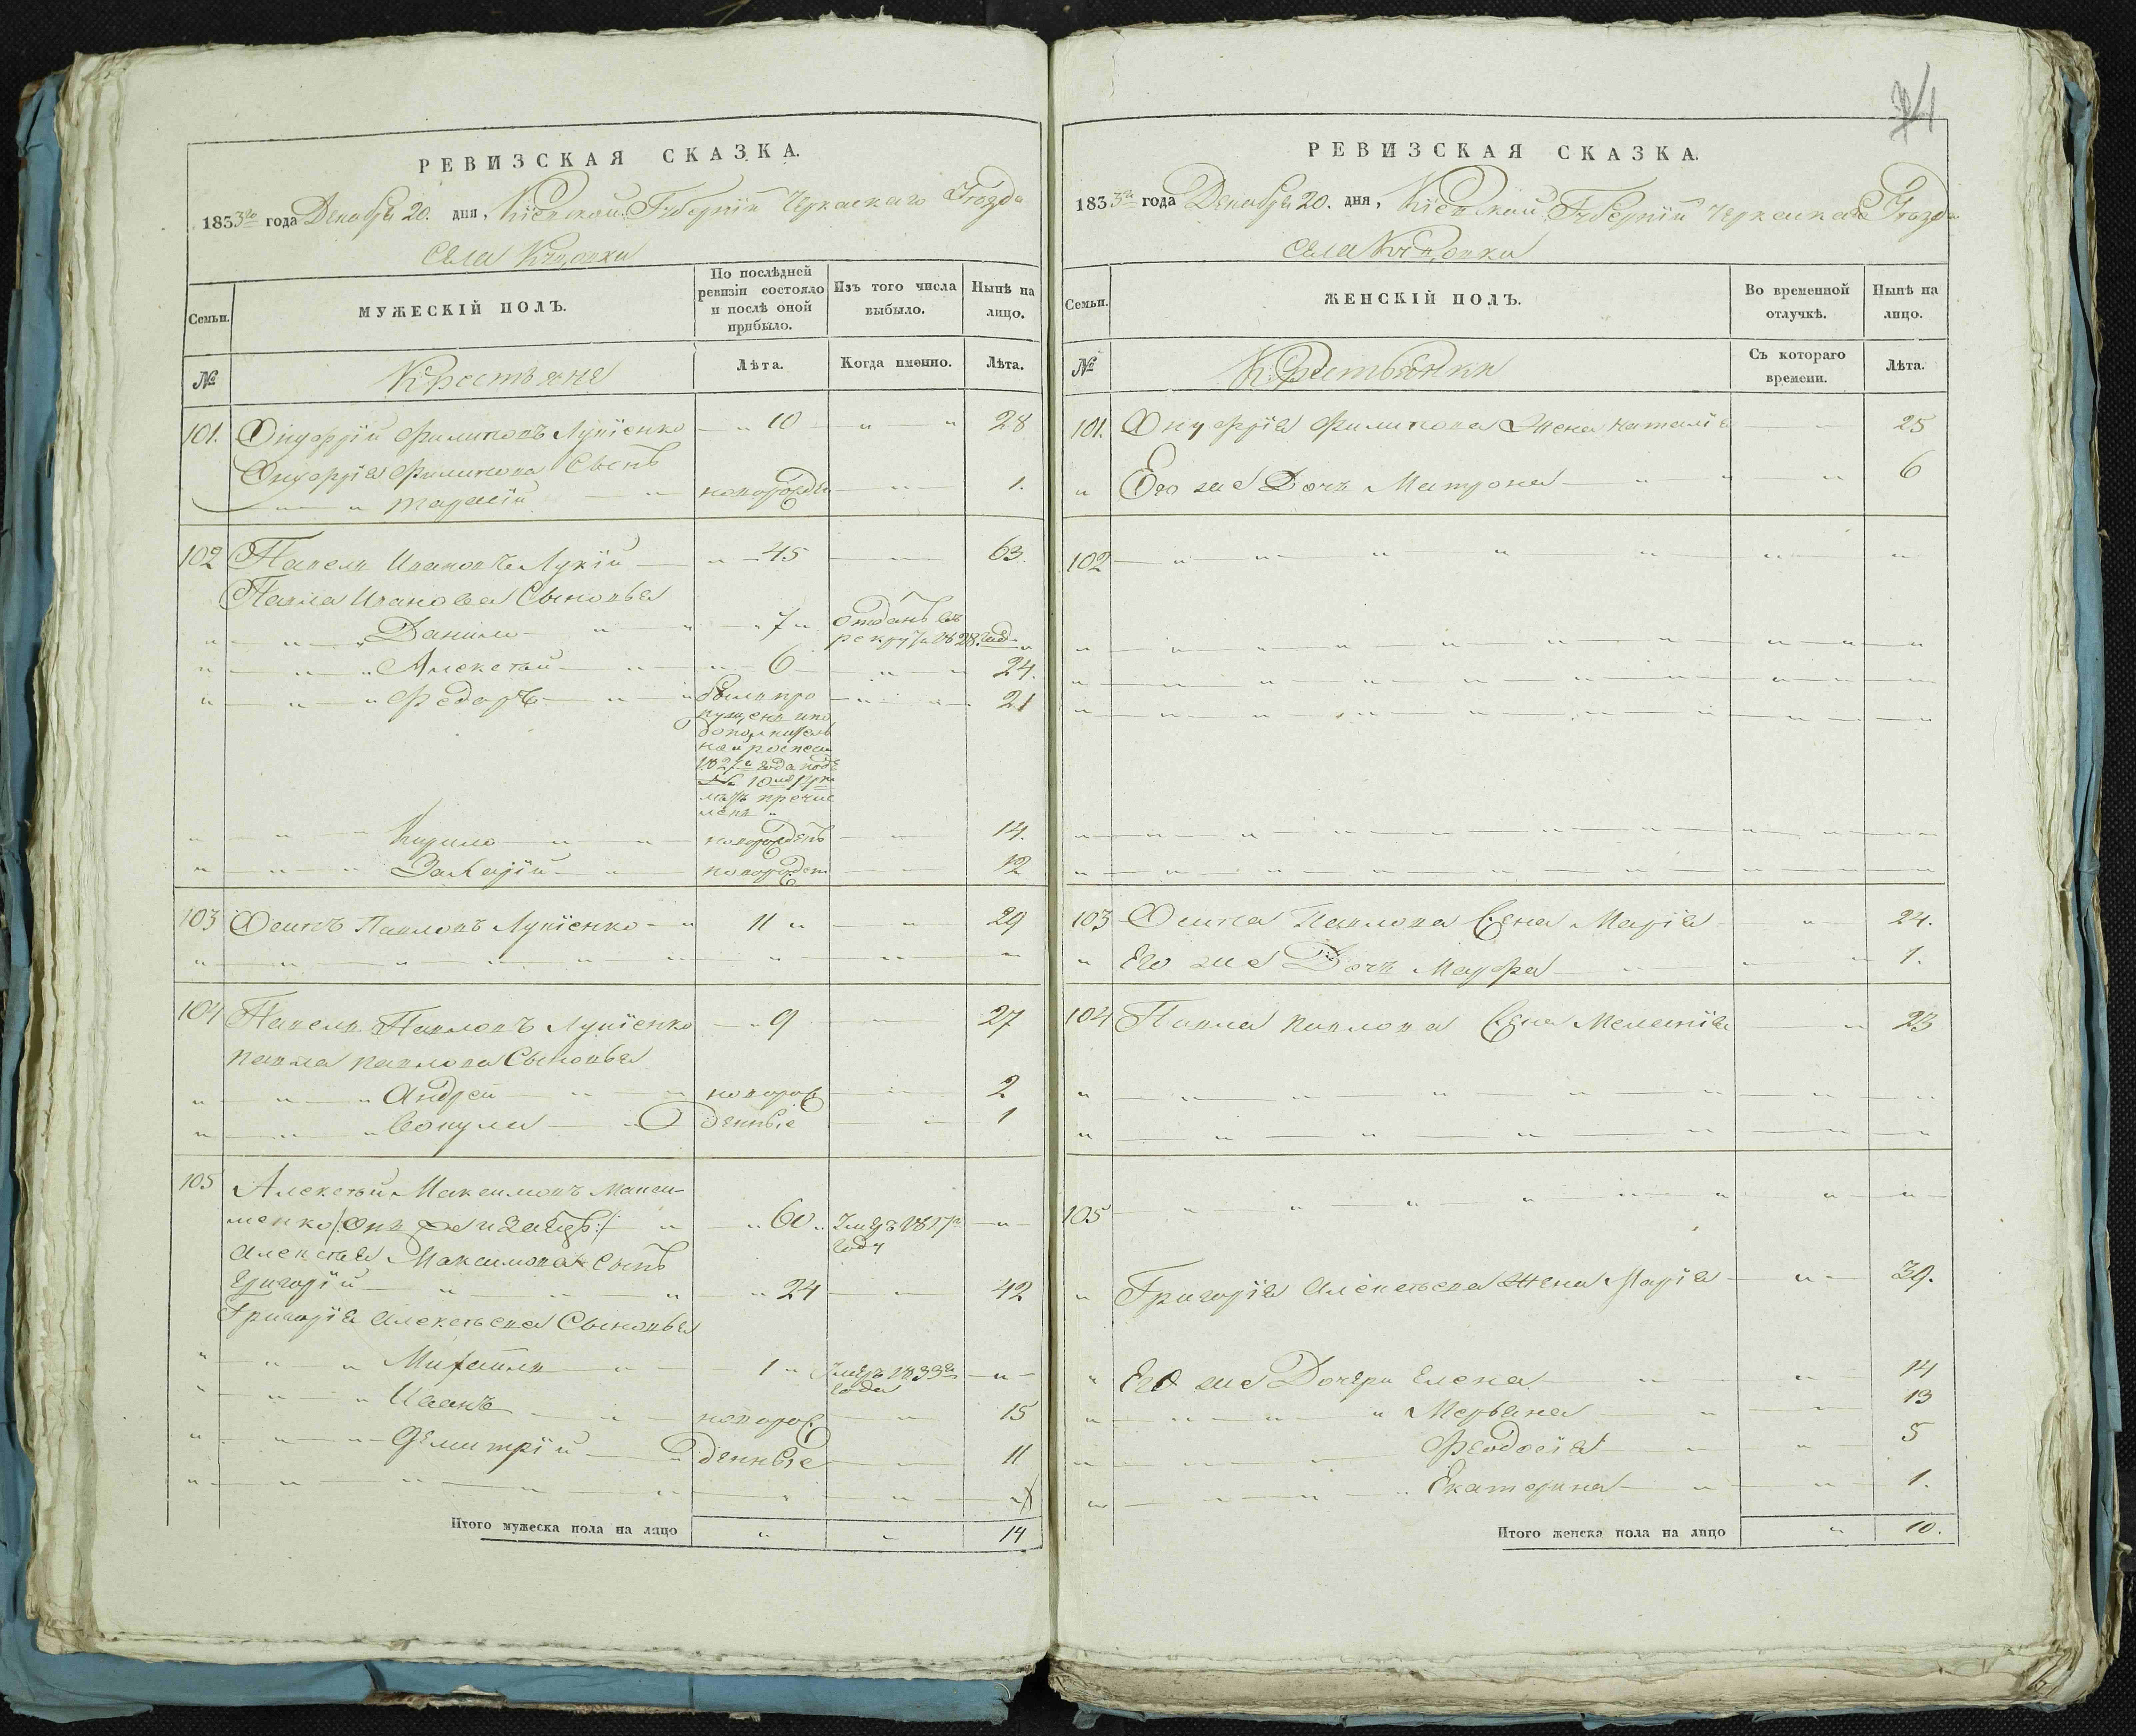 РЕВИЗСКАЯ СКАЗКА.
1833го года Декабря 20. дня, Кіевской Губерніи Черкаскаго Уѣзда
Села
Семьи.
МУЖЕСКІЙ ПОЛЪ.
По послѣдней ревизіи состояло и послѣ оной прибыло.
Изъ того числа выбыло.
Нынѣ на лицо.
№
Крестьяне
Лѣта.
Когда именно.
Лѣта.
101. Онуфрій Филиповъ Лупіенко 10 " " 28
Онуфрія Филипова Сынъ
Тарасій новорожден 1.
102 Павелъ Ивановъ 45 63.
Павла Иванова Сыновья
Данило 7 отданъ въ
рекруты 1828. год
Алексѣй 6 24.
Федоръ былъ про 21
пущенъ и по
дополнитель
ной росписи
года подъ
№ 10
причис
ленъ
Кирило новорожденъ 14.
Захарій новорожден 12
103 Осипъ Павловъ Лупіенко 11 29
104 Павелъ Павловъ Лупіенко 9 27
Павла Павлова Сыновья
Андрей новорож 2
Вокула денные 1
105 Алексѣй Максимовъ Макси-
менко /: онъ же и Заецъ :/ 60 Умеръ 1817го
году
Алексѣя Максимова Сынъ
Григорій 24 42
Григорія Алексѣева Сыновья
Михайла 1 Умеръ 1833го
года
Иванъ новорож 15
Димитрій денные 11
Итого мужеска пола на лицо " " 14
РЕВИЗСКАЯ СКАЗКА.
1833го года Декабря 20. дня, Кіевской Губерніи Черкаскаго Уѣзда
Села
Семьи.
ЖЕНСКІЙ ПОЛЪ.
Во временной отлучкѣ.
Нынѣ на лицо.
№
Крестьянки
Съ котораго времени.
Лѣта.
101. Онуфрія Филипова Жена Наталія 25
" Его же Дочь Матрона 6
102
103 Осипа Павлова Жена Марія 24.
" Его же Дочь Мавра 1.
104 Павла Павлова Жена Меланія 23
105
" Григорія Алексѣева Жена Марія 39.
" Его же Дочери Елена 14
" Марьяна 13
Феодосія 5
" Екатерина 1.
Итого женска пола на лицо " 10.